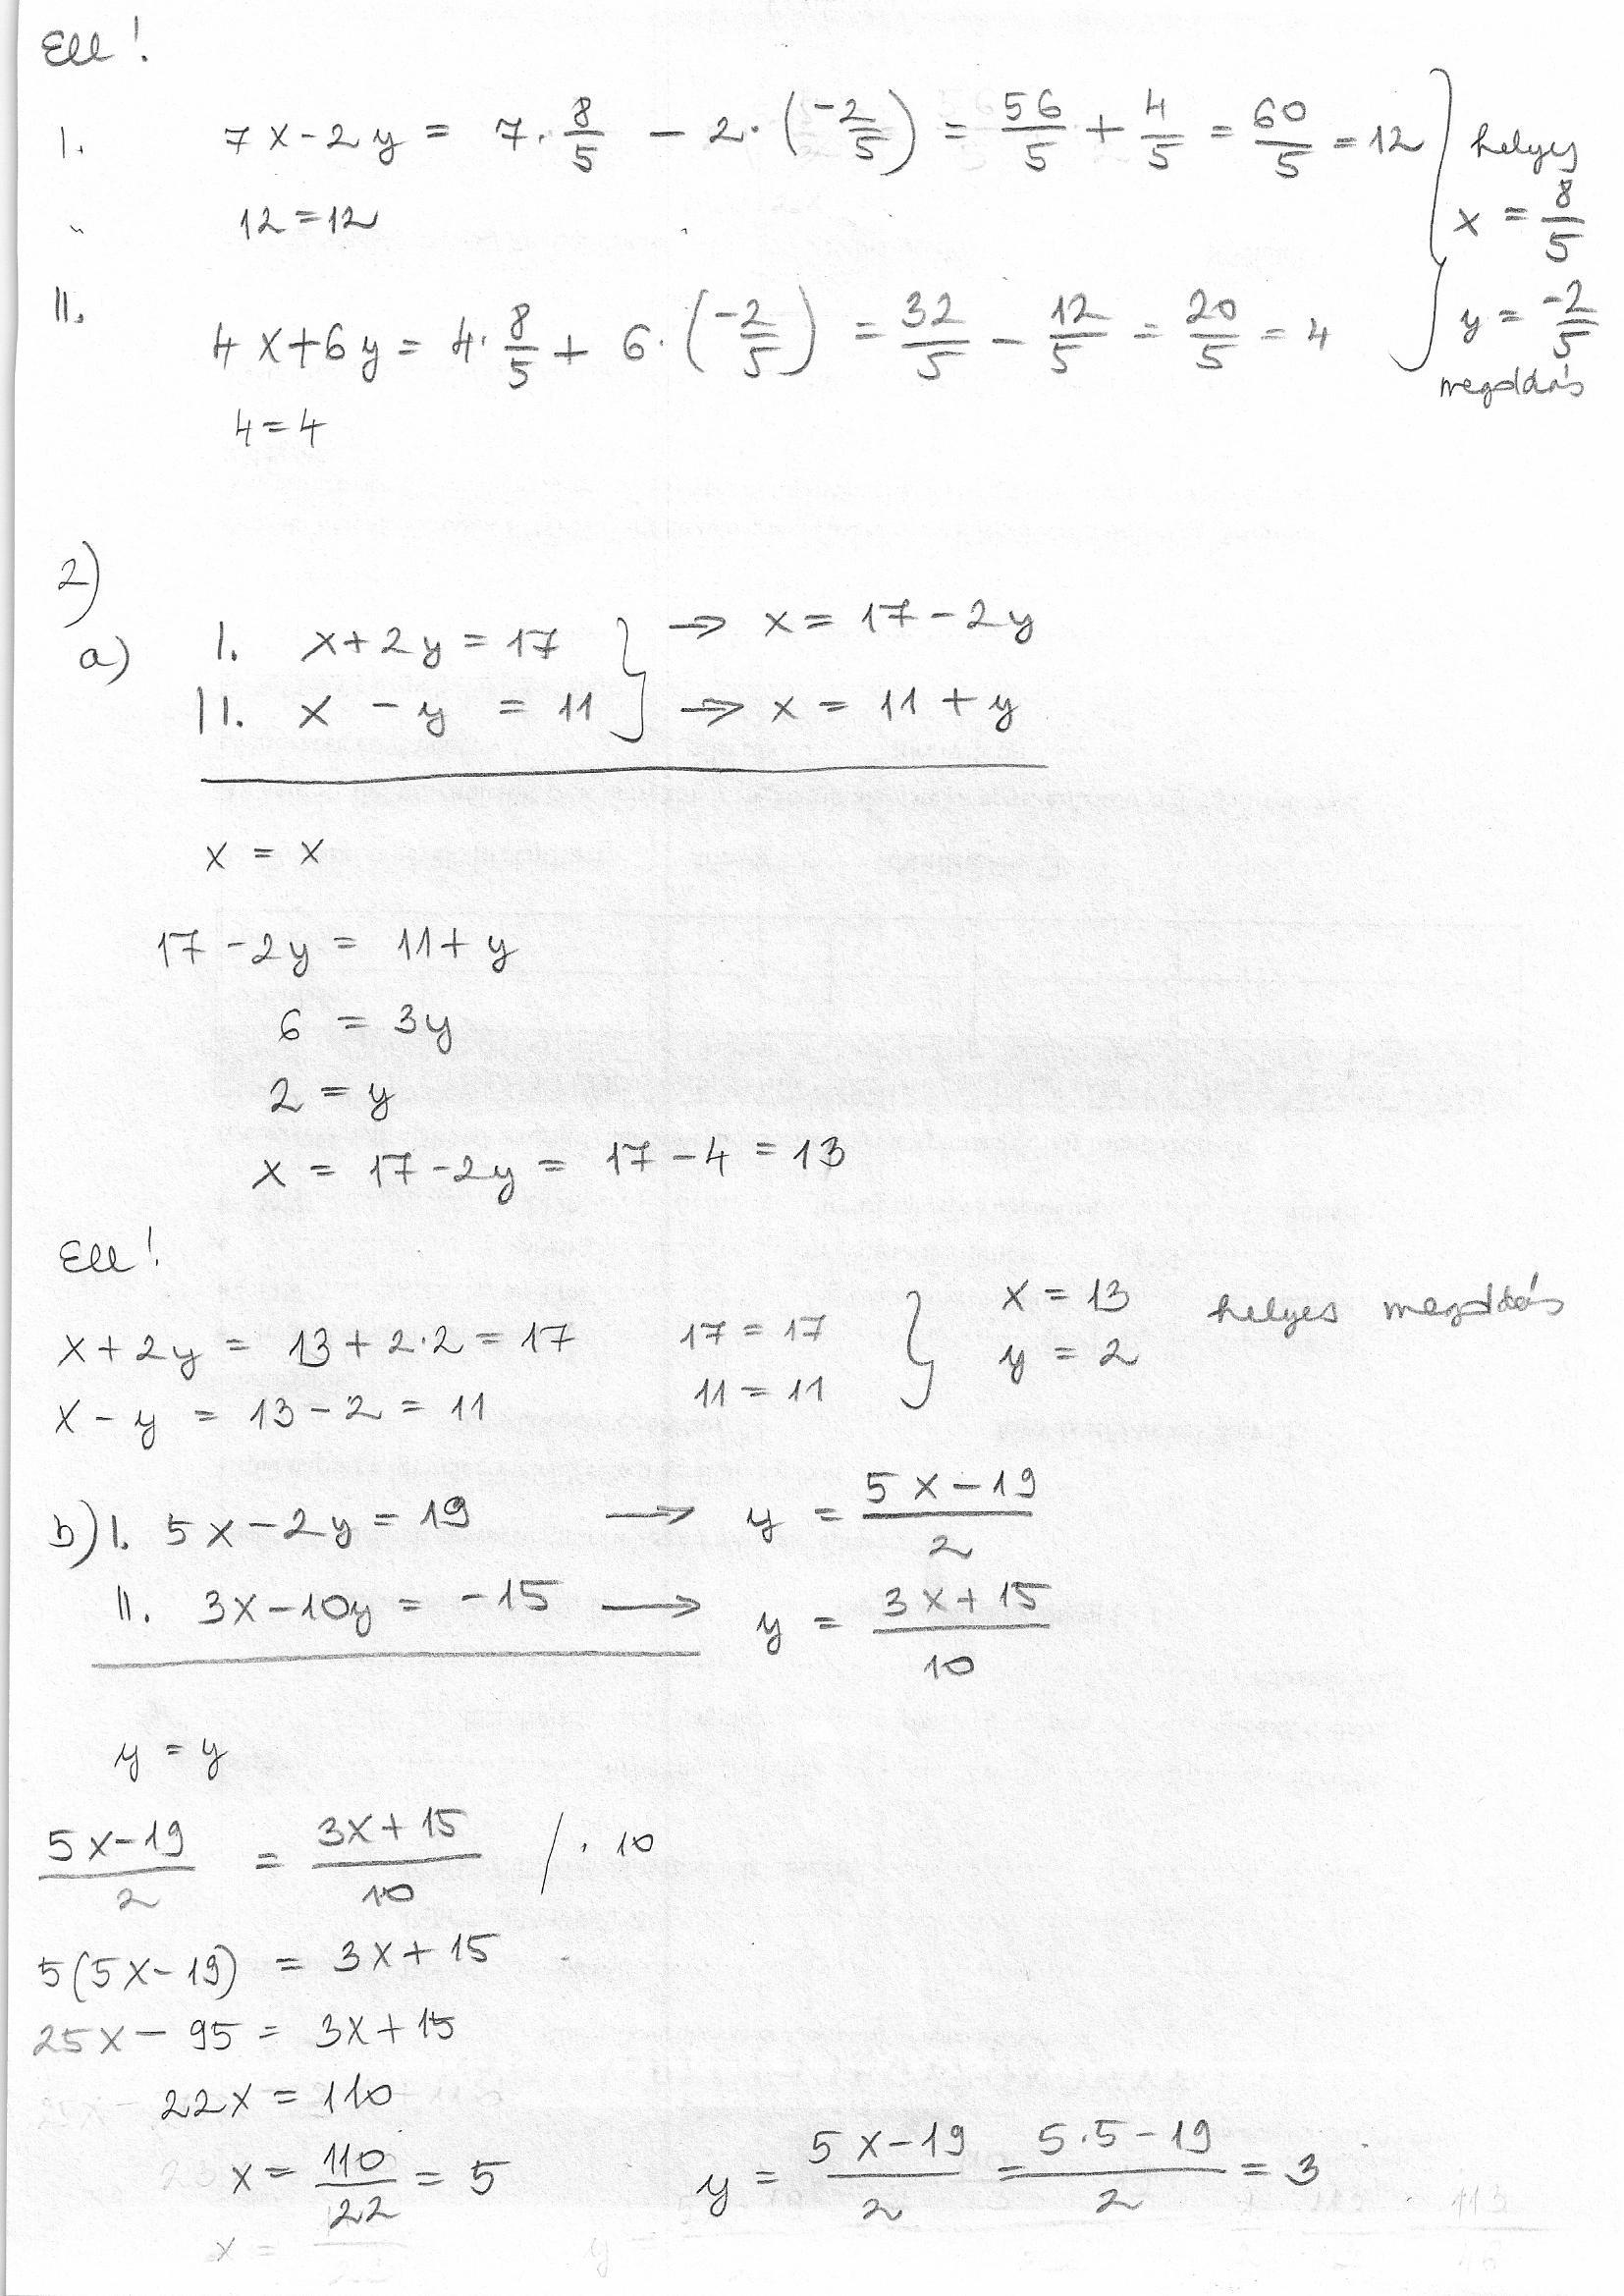 Ell!
I. 7x-2y = 7·8/5 - 2·(-2/5) = 56/5 + 4/5 = 60/5 = 12 } helyes
12=12
x = 8/5
II. 4x+6y = 4·8/5 + 6·(-2/5) = 32/5 - 12/5 = 20/5 = 4
y = -2/5
megoldás
4=4
2)
a) I. x+2y = 17 } → x = 17-2y
II. x - y = 11 } → x = 11+y
x = x
17-2y = 11+y
6 = 3y
2 = y
x = 17-2y = 17-4 = 13
Ell!
x+2y = 13+2·2 = 17 17=17 } x = 13 helyes megoldás
x-y = 13-2 = 11 11=11 } y = 2
b) I. 5x-2y = 19 → y = (5x-19)/2
II. 3x-10y = -15 → y = (3x+15)/10
y = y
(5x-19)/2 = (3x+15)/10 /·10
5(5x-19) = 3x+15
25x-95 = 3x+15
22x = 110
x = 110/22 = 5 y = (5x-19)/2 = (5·5-19)/2 = 3